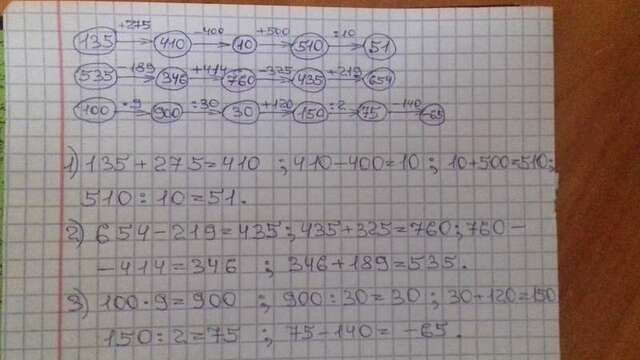 135 +275 → 410 -400 → 10 +500 → 510 :10 → 51
535 -189 → 346 +414 → 760 -325 → 435 +219 → 654
100 ·9 → 900 :30 → 30 +120 → 150 :2 → 75 -140 → -65
1) 135 + 275 = 410 ; 410 - 400 = 10 ; 10 + 500 = 510 ;
510 : 10 = 51.
2) 654 - 219 = 435 ; 435 + 325 = 760 ; 760 -
- 414 = 346 ; 346 + 189 = 535.
3) 100 · 9 = 900 ; 900 : 30 = 30 ; 30 + 120 = 150
150 : 2 = 75 ; 75 - 140 = -65.